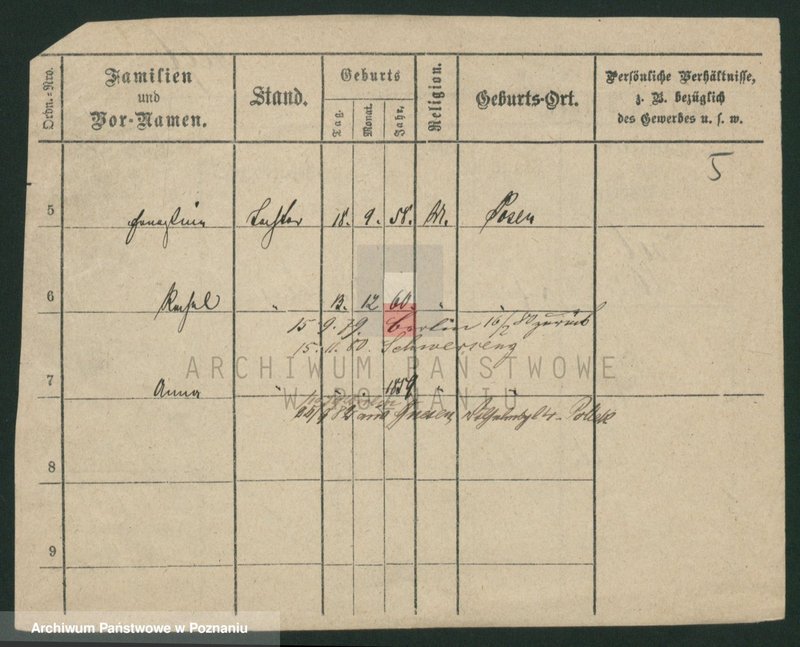 Ordn.-Nro.
Familien
und
Vor-Namen.
Stand.
Geburts
Tag.
Monat.
Jahr,
Religion.
Geburts-Ort.
Persönliche Verhältnisse,
z. B. bezüglich
des Gewerbes u. s. w.
5
5 Ernestine Tochter 18. 9. 58. M. Posen
6 Rachel " 13. 12 60. " "
15. 9. 79. Berlin 16/2 80 zurück
15. 11. 80. Schwersenz
ARCHIWUM PAŃSTWOWE
W POZNANIU
7 Anna " 1859 " "
82 aus Gnesen
8
9
Archiwum Państwowe w Poznaniu